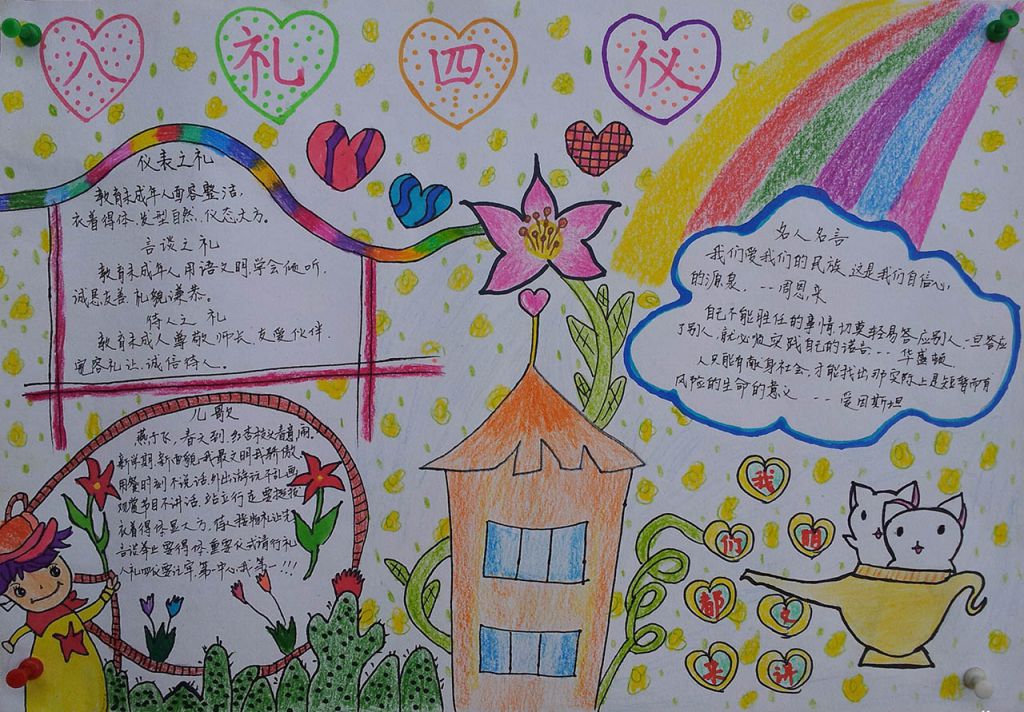 八礼四仪
仪表之礼
教育未成年人面容整洁,
衣着得体、发型自然、仪态大方。
言谈之礼
教育未成年人用语文明,学会倾听,
诚恳友善,礼貌谦恭。
待人之礼
教育未成人尊敬师长、友爱伙伴,
宽容礼让、诚信待人。
儿歌
燕子飞,春天到,红杏枝头春意闹。
新学期,新面貌,我最文明我骄傲
用餐时刻不说话,外出游玩不乱画
观赏节目不讲话,站立行走要挺拔
衣着得体显大方,待人接物礼让先
言谈举止要得体,重要仪式请行礼
八礼四仪要记牢,第一中心我第一!!!
名人名言
我们爱我们的民族,这是我们自信心
的源泉。--周恩来
自己不能胜任的事情,切莫轻易答应别人,一旦答应
了别人,就必须实践自己的诺言--华盛顿
人只能有献身社会,才能找出那实际上是短暂而有
风险的生命的意义 --爱因斯坦
我
们 明
都
来 讲